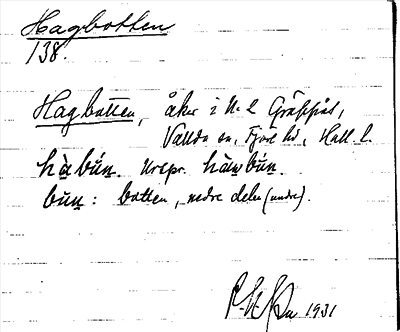 Hagbotten
138.
Hagbotten, åker i
Vallda sn, Fjäre hd, Hall. l.
hàbún. Urspr. hàwbún.
bun: botten, nedre delen (undre).
1931